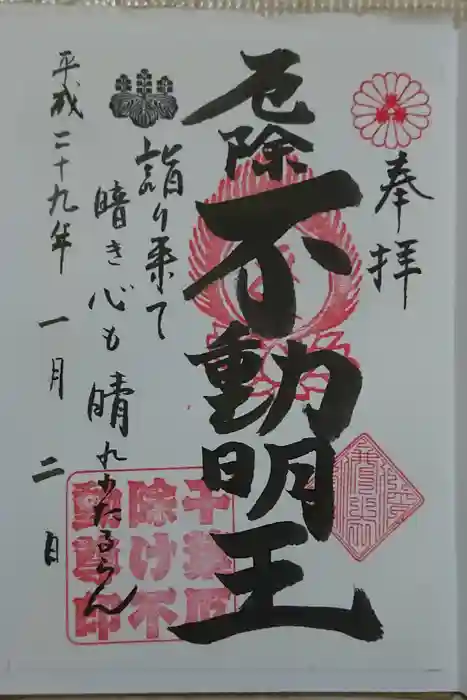 奉拝
厄除
不動明王
詣り来て
暗き心も晴れわたるらん
平成二十九年一月二日
千葉厄
除け不
動尊印